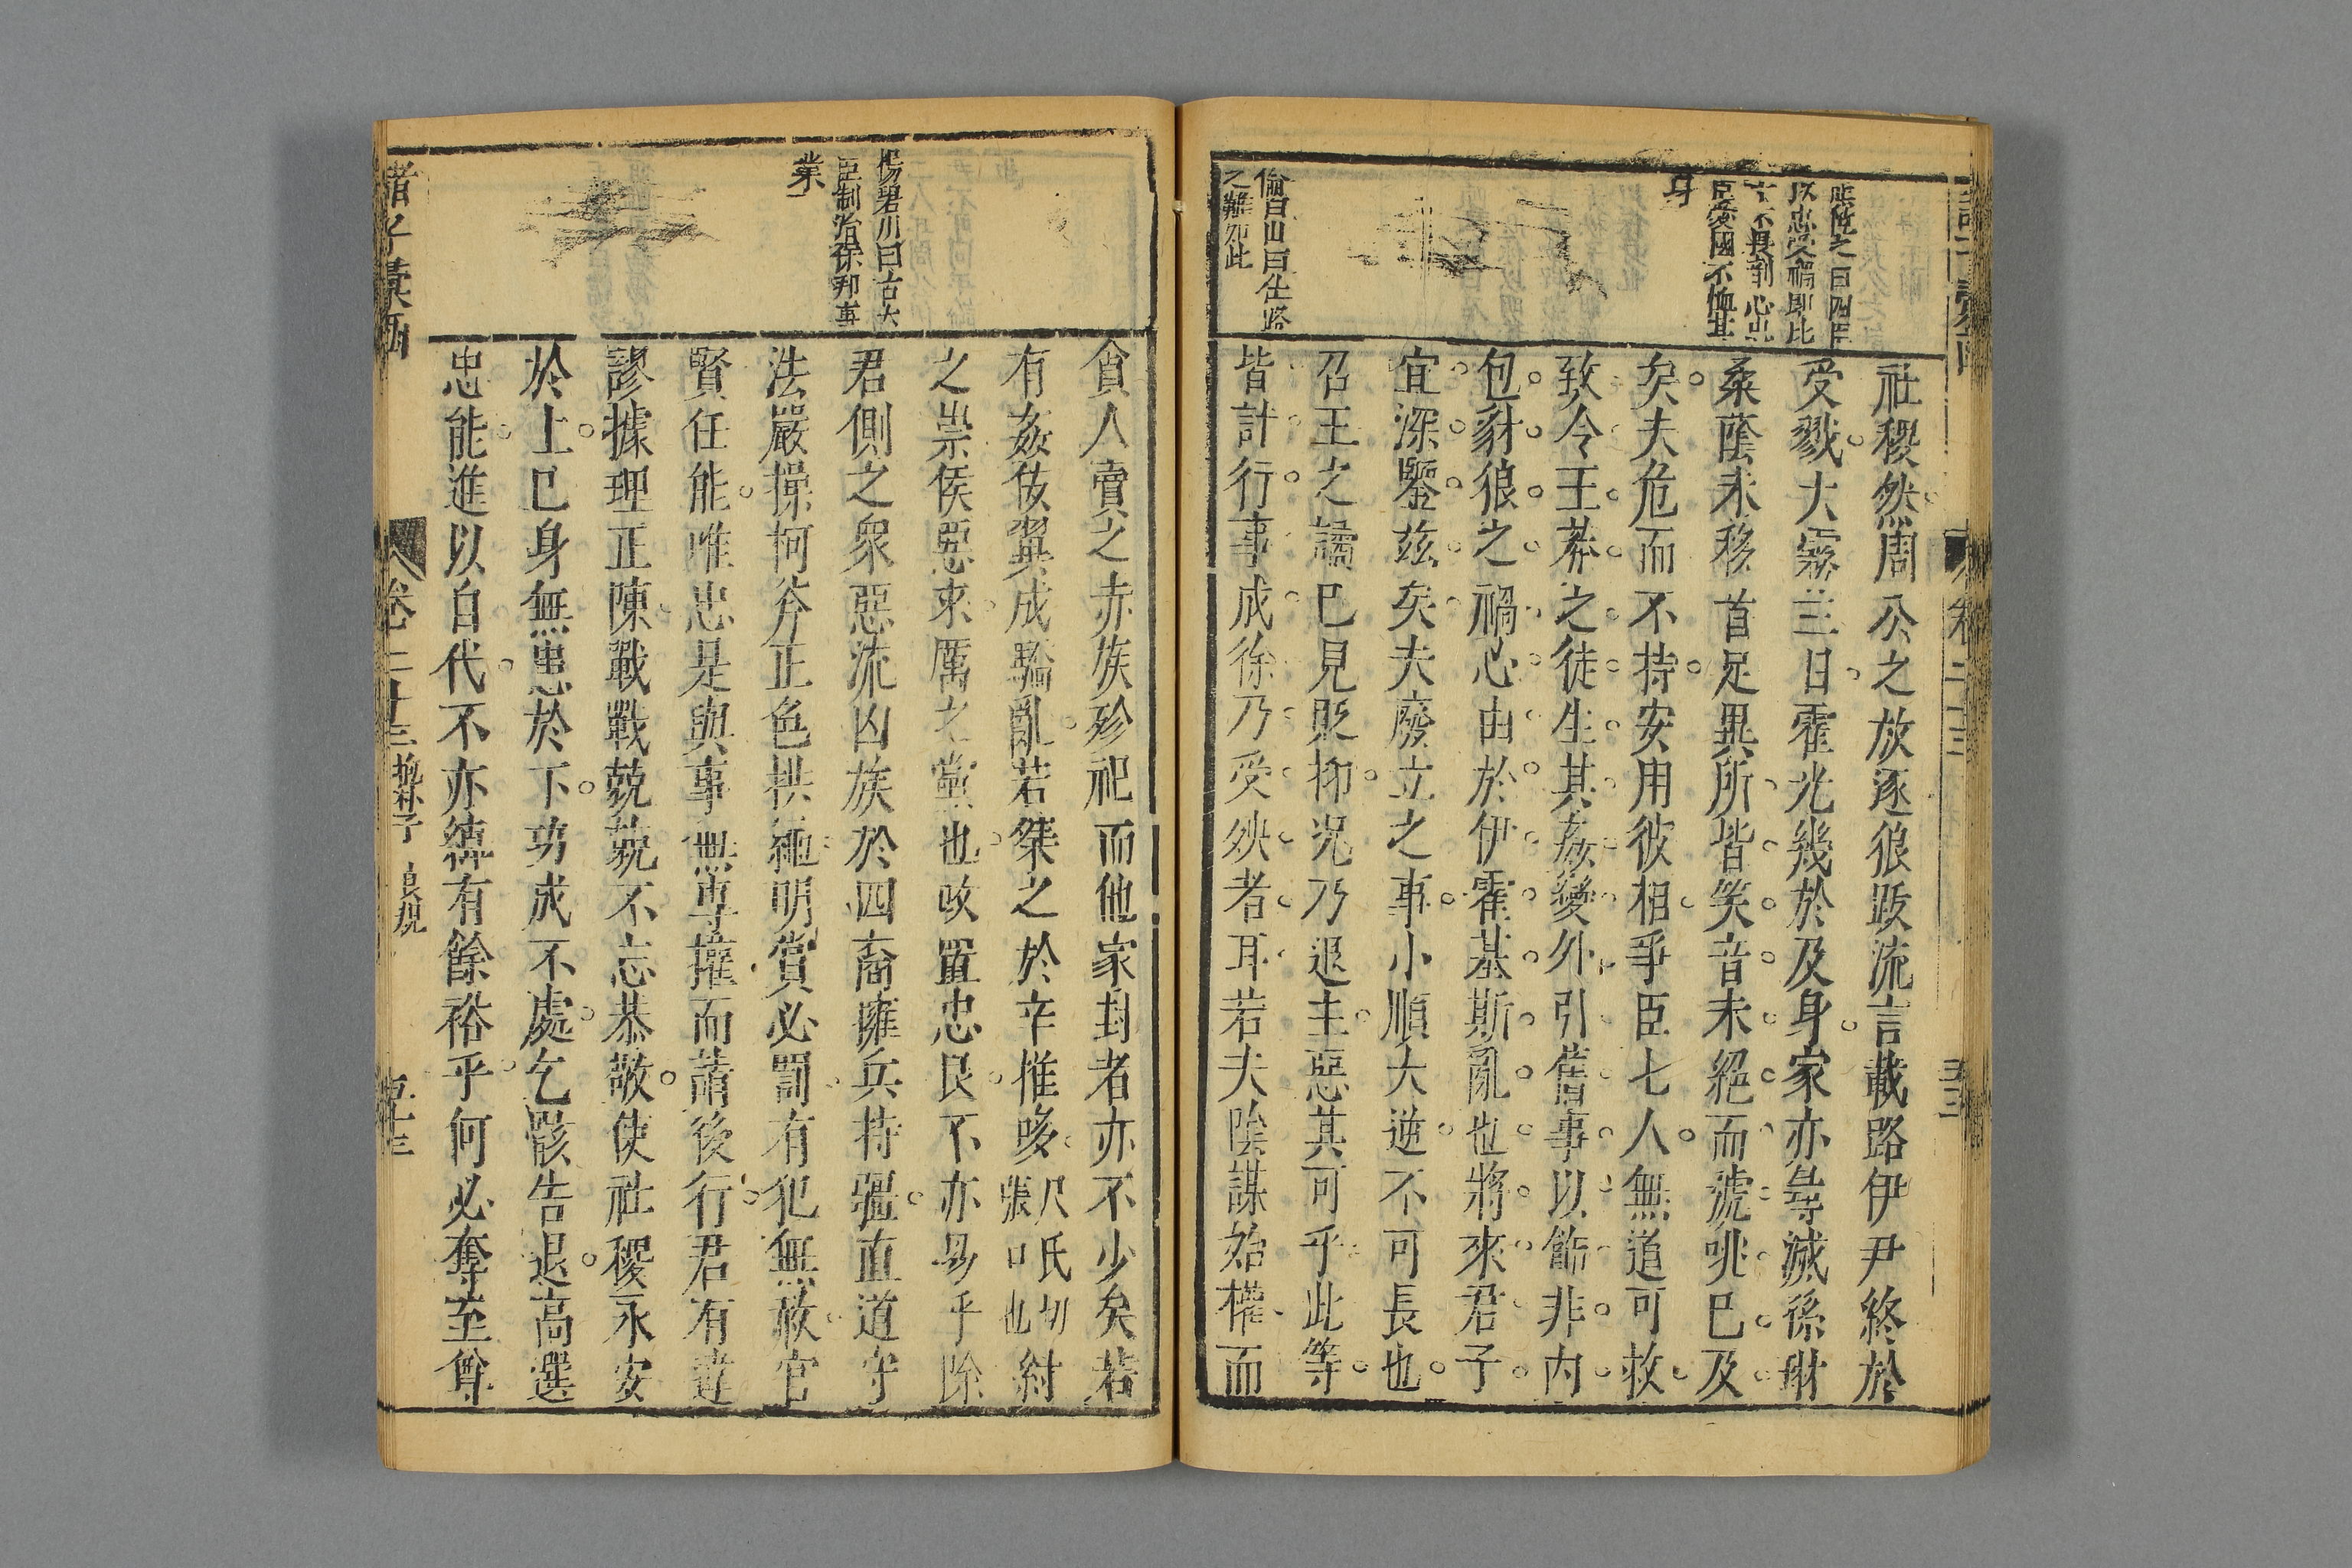 社稷然周公之放逐狼跋流言載路伊尹終於
受戮大霧三日霍光幾於及身家亦尋滅孫綝
桑蔭未移首足異所皆笑音未絕而號咷已及
矣夫危而不持安用彼相爭臣七人無道可救
致令王莽之徒生其姦變外引舊事以飾非內
包豺狼之禍心由於伊霍基斯亂也將來君子
宜深鑒茲矣夫廢立之事小順大逆不可長也
召王之譎已見貶抑況乃退主惡其可乎此等
皆計行事成徐乃受殃者耳若夫陰謀始權而
以忠受禍即比
臣憂國不恤其
身
曰仕路
之難如此
貪人賣之赤族殄祀而他家封者亦不少矣若
有姦佞翼成驕亂若桀之於辛推哆尺氏切張口也紂
之崇侯惡來厲之黨也改置忠良不亦易乎除
君側之眾惡流凶族於四裔擁兵持彊直道守
法嚴操柯斧正色拱繩明賞必罰有犯無赦官
賢任能唯忠是與事無專擅而請後行君有違
謬據理正陳戰戰兢兢不忘恭敬使社稷永安
於上已身無患於下功成不處乞骸告退高選
忠能進以自代不亦綽有餘裕乎何必奪至尊
楊碧川曰古大
臣制治保邦事
業
諸子彙函
卷二十三 抱朴子 良規